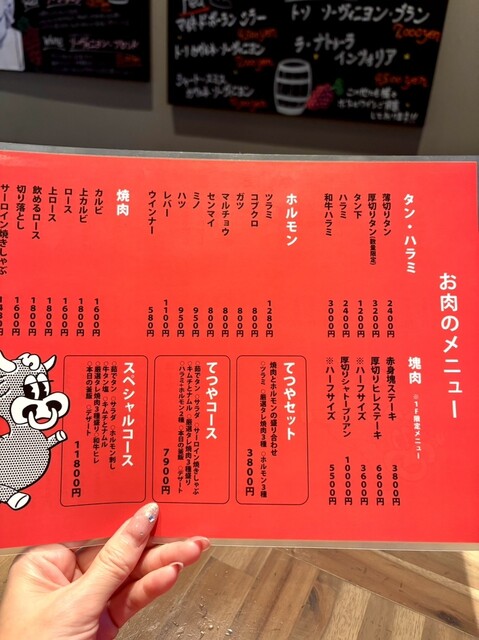 お肉のメニュー
タン・ハラミ
薄切りタン 2400円
厚切りタン(数量限定) 3200円
タン下 1200円
ハラミ 2400円
和牛ハラミ 3000円
塊肉 ※1F限定メニュー
赤身塊ステーキ 3800円
厚切りヒレステーキ 6600円
※ハーフサイズ 3600円
厚切りシャトーブリアン 10000円
※ハーフサイズ 5500円
ホルモン
ツラミ 1280円
コブクロ 800円
ガツ 800円
マルチョウ 800円
センマイ 800円
ミノ 950円
ハツ 950円
レバー 1100円
ウインナー 580円
てつやセット
焼肉とホルモンの盛り合わせ
○ツラミ ○厳選タレ焼肉3種 ○ホルモン3種
3800円
焼肉
カルビ 1600円
上カルビ 1800円
ロース 1600円
上ロース 1800円
飲めるロース 1800円
切り落とし 1600円
サーロイン焼きしゃぶ
てつやコース
○茹でタン ○サラダ ○サーロイン焼きしゃぶ
○キムチとナムル ○厳選タレ焼肉3種盛り
○ハラミ+ホルモン2種 ○本日の釜飯 ○デザート
7900円
スペシャルコース
○茹でタン ○サラダ ○ホルモン刺し
○牛タン塩 ○キムチとナムル
○厳選タレ焼肉3種盛り ○和牛ヒレ
○本日の釜飯 ○デザート
11800円
トリ ソーヴィニヨン・ブラン
ラ・ナトゥーラ
インフォリア